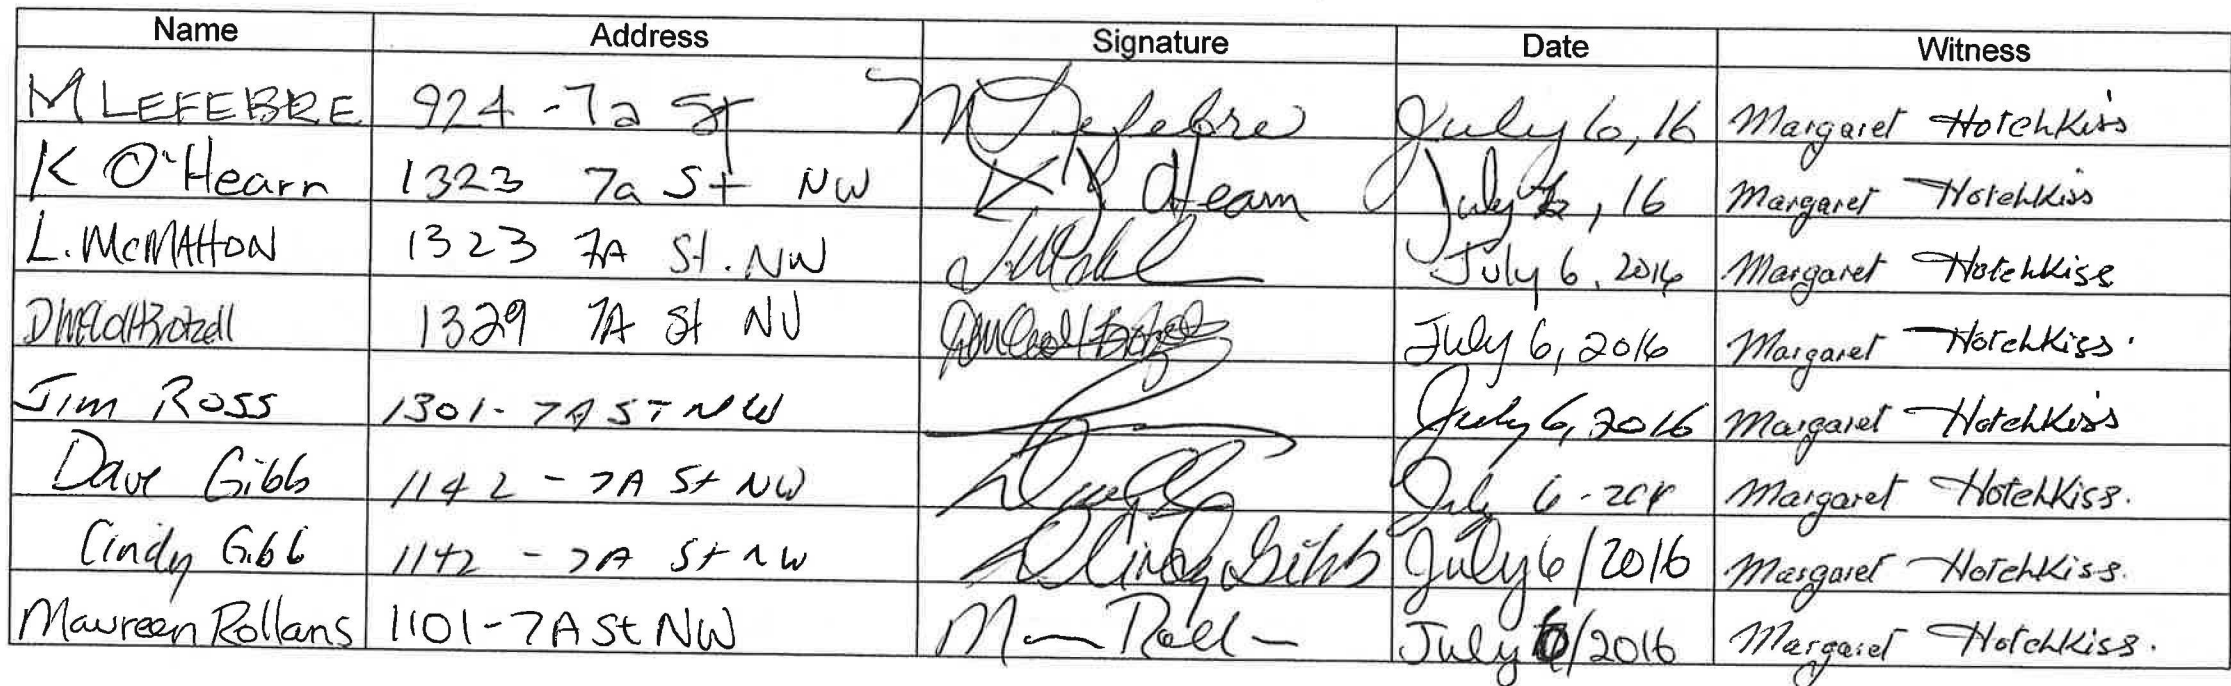 Name Address Signature Date Witness
M LEFEBRE 924 - 7a St M Lefebre July 6, 16 Margaret Hotchkiss
K O'Hearn 1323 7a St NW K O'Hearn July 6, 16 Margaret Hotchkiss
L. McMAHON 1323 7A St. NW July 6, 2016 Margaret Hotchkiss
1329 7A St NW July 6, 2016 Margaret Hotchkiss.
Jim Ross 1301 - 7A ST NW July 6, 2016 Margaret Hotchkiss
Dave Gibb 1142 - 7A St NW July 6 - Margaret Hotchkiss.
Cindy Gibb 1142 - 7A St NW Cindy Gibb July 6/2016 Margaret Hotchkiss.
Maureen Rollans 1101 - 7A St NW July 6/2016 Margaret Hotchkiss.